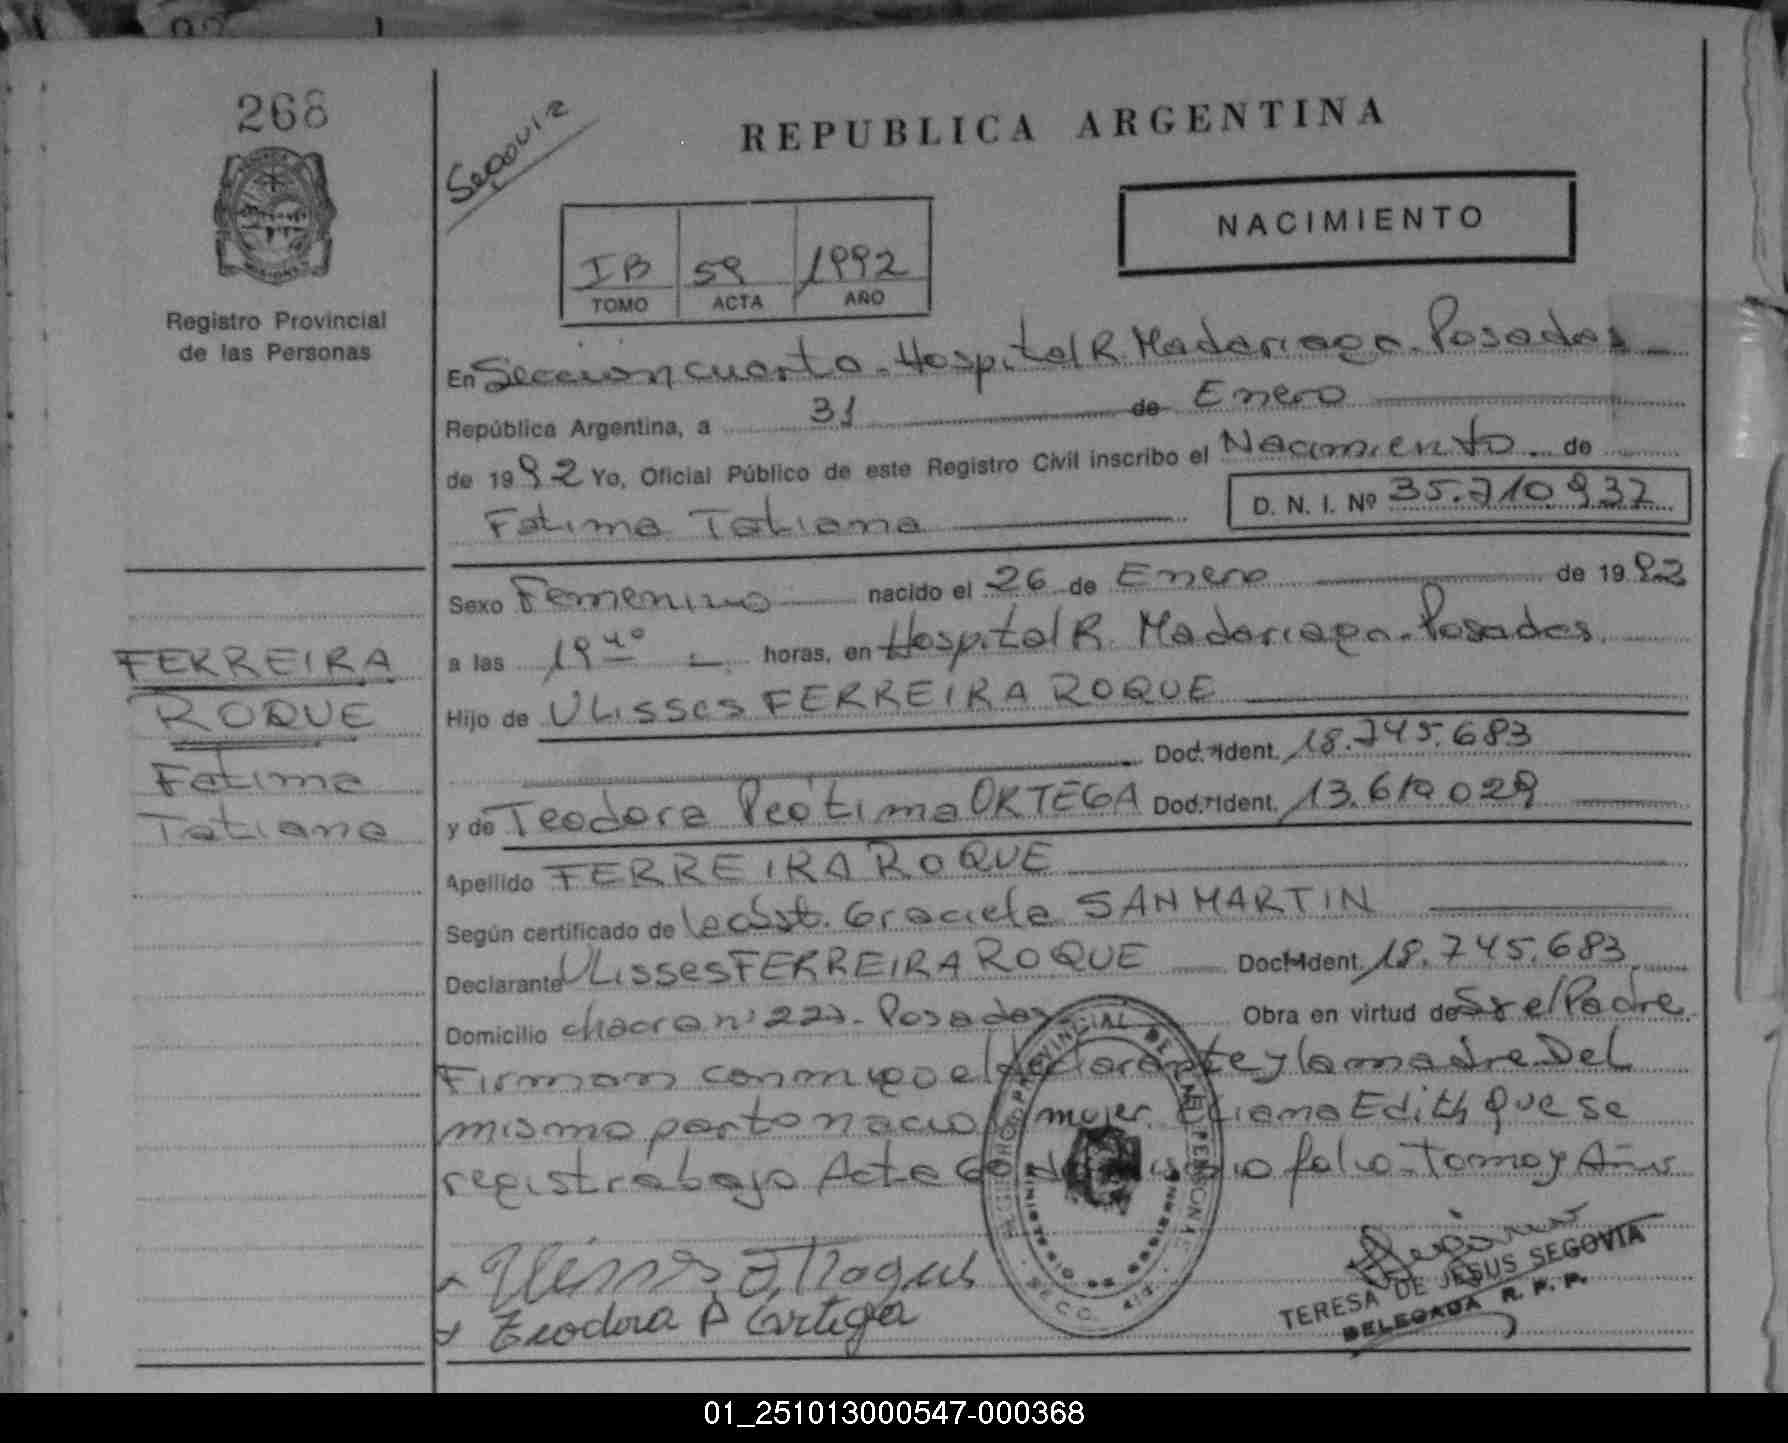 268
REPUBLICA ARGENTINA
NACIMIENTO
IB 59 1992
TOMO ACTA AÑO
Registro Provincial
de las Personas
En Sección cuarta. Hospital R. Madariaga. Posadas
República Argentina, a 31 de Enero
de 1992 Yo, Oficial Público de este Registro Civil inscribo el Nacimiento de
Fatima Tatiana D. N. I. Nº 35.710.937
Sexo Femenino nacido el 26 de Enero de 1992
a las 19 40 horas, en Hospital R. Madariaga. Posadas.
FERREIRA
ROQUE
Fatima
Tatiana
Hijo de ULisses FERREIRA ROQUE
Doc. Ident. 18.745.683
y de Teodora Peótima ORTEGA Doc. Ident. 13.619.029
Apellido FERREIRA ROQUE
Según certificado de la obst. Graciela SAN MARTIN
Declarante ULisses FERREIRA ROQUE Doc. Ident. 18.745.683
Domicilio chacra nº 227. Posadas Obra en virtud de Sr el Padre.
Firman conmigo el declarante y la madre. Del
mismo parto nació mujer. Eliana Edith que se
registra bajo Acta 60 del mismo folio. Tomo y Año
Teodora P Ortega
REGISTRO PROVINCIAL DE LAS PERSONAS
MINISTERIO DE GOBIERNO
TERESA DE JESUS SEGOVIA
DELEGADA R. P. P.
01_251013000547-000368